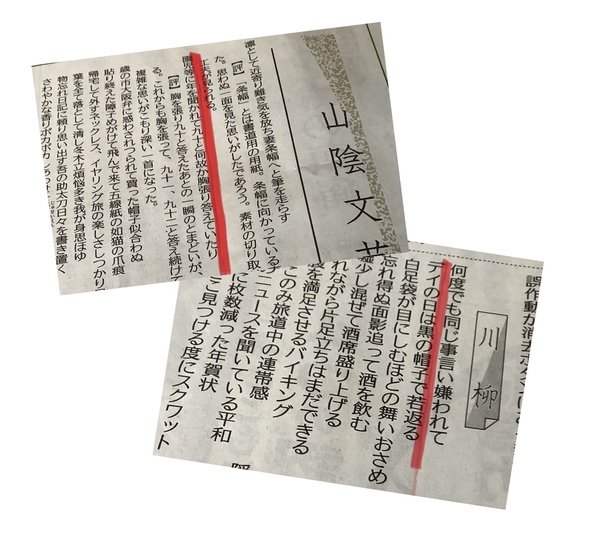 山陰文芸
凛として近寄り難き気を放ち妻条幅へと筆を走らす
【評】「条幅」とは書道用の用紙。条幅に向かっている
た。思わぬ一面を見た思いがしたであろう。素材の切り取
工夫が見られる。
園児等に年を聞かれて九十と何故か胸張り答えていたり
【評】胸を張り九十と答えたあとの一瞬のとまどいが、
る。これからも胸を張って、九十一、九十二と答え続け
複雑な思いがこもり深い一首になった。
歳の市大阪弁に惑わされつられて買った帽子似合わぬ
貼り終えた障子めがけて飛んで来て五線紙の如猫の爪痕
帰宅して外すネックレス、イヤリング旅の楽しさしっかり
葉を全て落として清し冬木立煩悩多き我が身思ほゆ
物忘れ日記に頼り思い出す吾の助太刀日々を書き置く
さわやかな香りポカポカ
川柳
何度でも同じ事言い嫌われて
デイの日は黒の帽子で若返る
白足袋が目にしむほどの舞いおさめ
忘れ得ぬ面影追って酒を飲む
少し混ぜて酒席盛り上げる
れながら片足立ちはまだできる
を満足させるバイキング
このみ旅道中の連帯感
ニュースを聞いている平和
に枚数減った年賀状
見つける度にスクワット